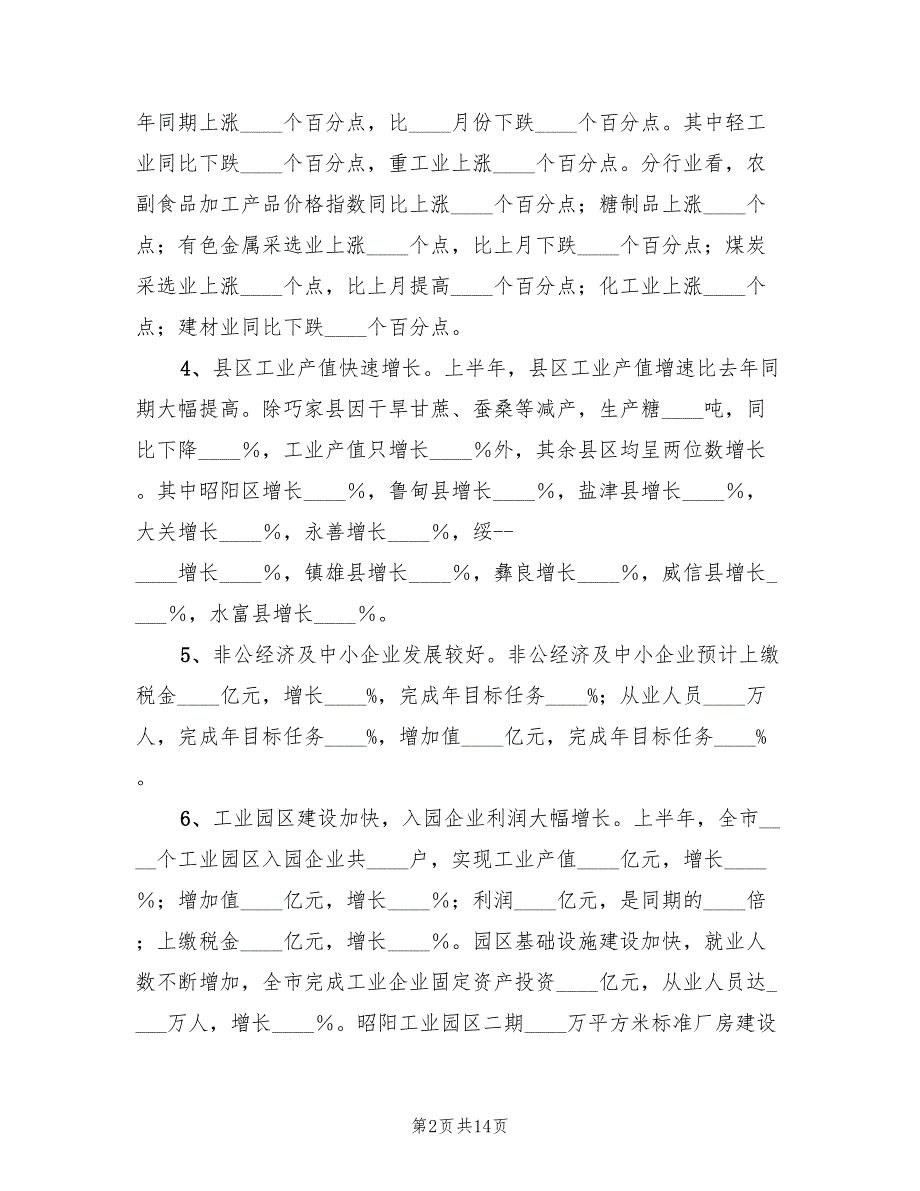 年同期上涨____个百分点，比____月份下跌____个百分点。其中轻工
业同比下跌____个百分点，重工业上涨____个百分点。分行业看，农
副食品加工产品价格指数同比上涨____个百分点；糖制品上涨____个
点；有色金属采选业上涨____个点，比上月下跌____个百分点；煤炭
采选业上涨____个点，比上月提高____个百分点；化工业上涨____个
点；建材业同比下跌____个百分点。
4、县区工业产值快速增长。上半年，县区工业产值增速比去年同
期大幅提高。除巧家县因干旱甘蔗、蚕桑等减产，生产糖____吨，同
比下降____%，工业产值只增长____%外，其余县区均呈两位数增长
。其中昭阳区增长____%，鲁甸县增长____%，盐津县增长____%，
大关增长____%，永善增长____%，绥--
____增长____%，镇雄县增长____%，彝良增长____%，威信县增长_
___%，水富县增长____%。
5、非公经济及中小企业发展较好。非公经济及中小企业预计上缴
税金____亿元，增长____%，完成年目标任务____%；从业人员____万
人，完成年目标任务____%，增加值____亿元，完成年目标任务____%
。
6、工业园区建设加快，入园企业利润大幅增长。上半年，全市__
__个工业园区入园企业共____户，实现工业产值____亿元，增长____
%；增加值____亿元，增长____%；利润____亿元，是同期的____倍
；上缴税金____亿元，增长____%。园区基础设施建设加快，就业人
数不断增加，全市完成工业企业固定资产投资____亿元，从业人员达_
___万人，增长____%。昭阳工业园区二期____万平方米标准厂房建设
第2页共14页